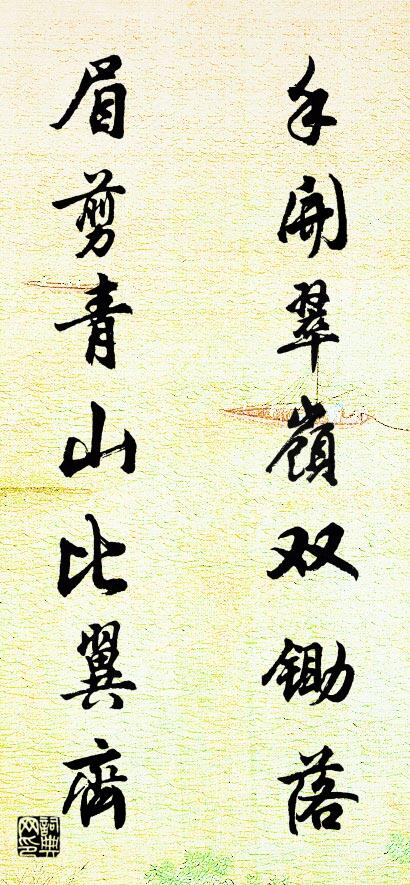 手開翠嶺双锄落
眉剪青山比翼齊
詞典网印